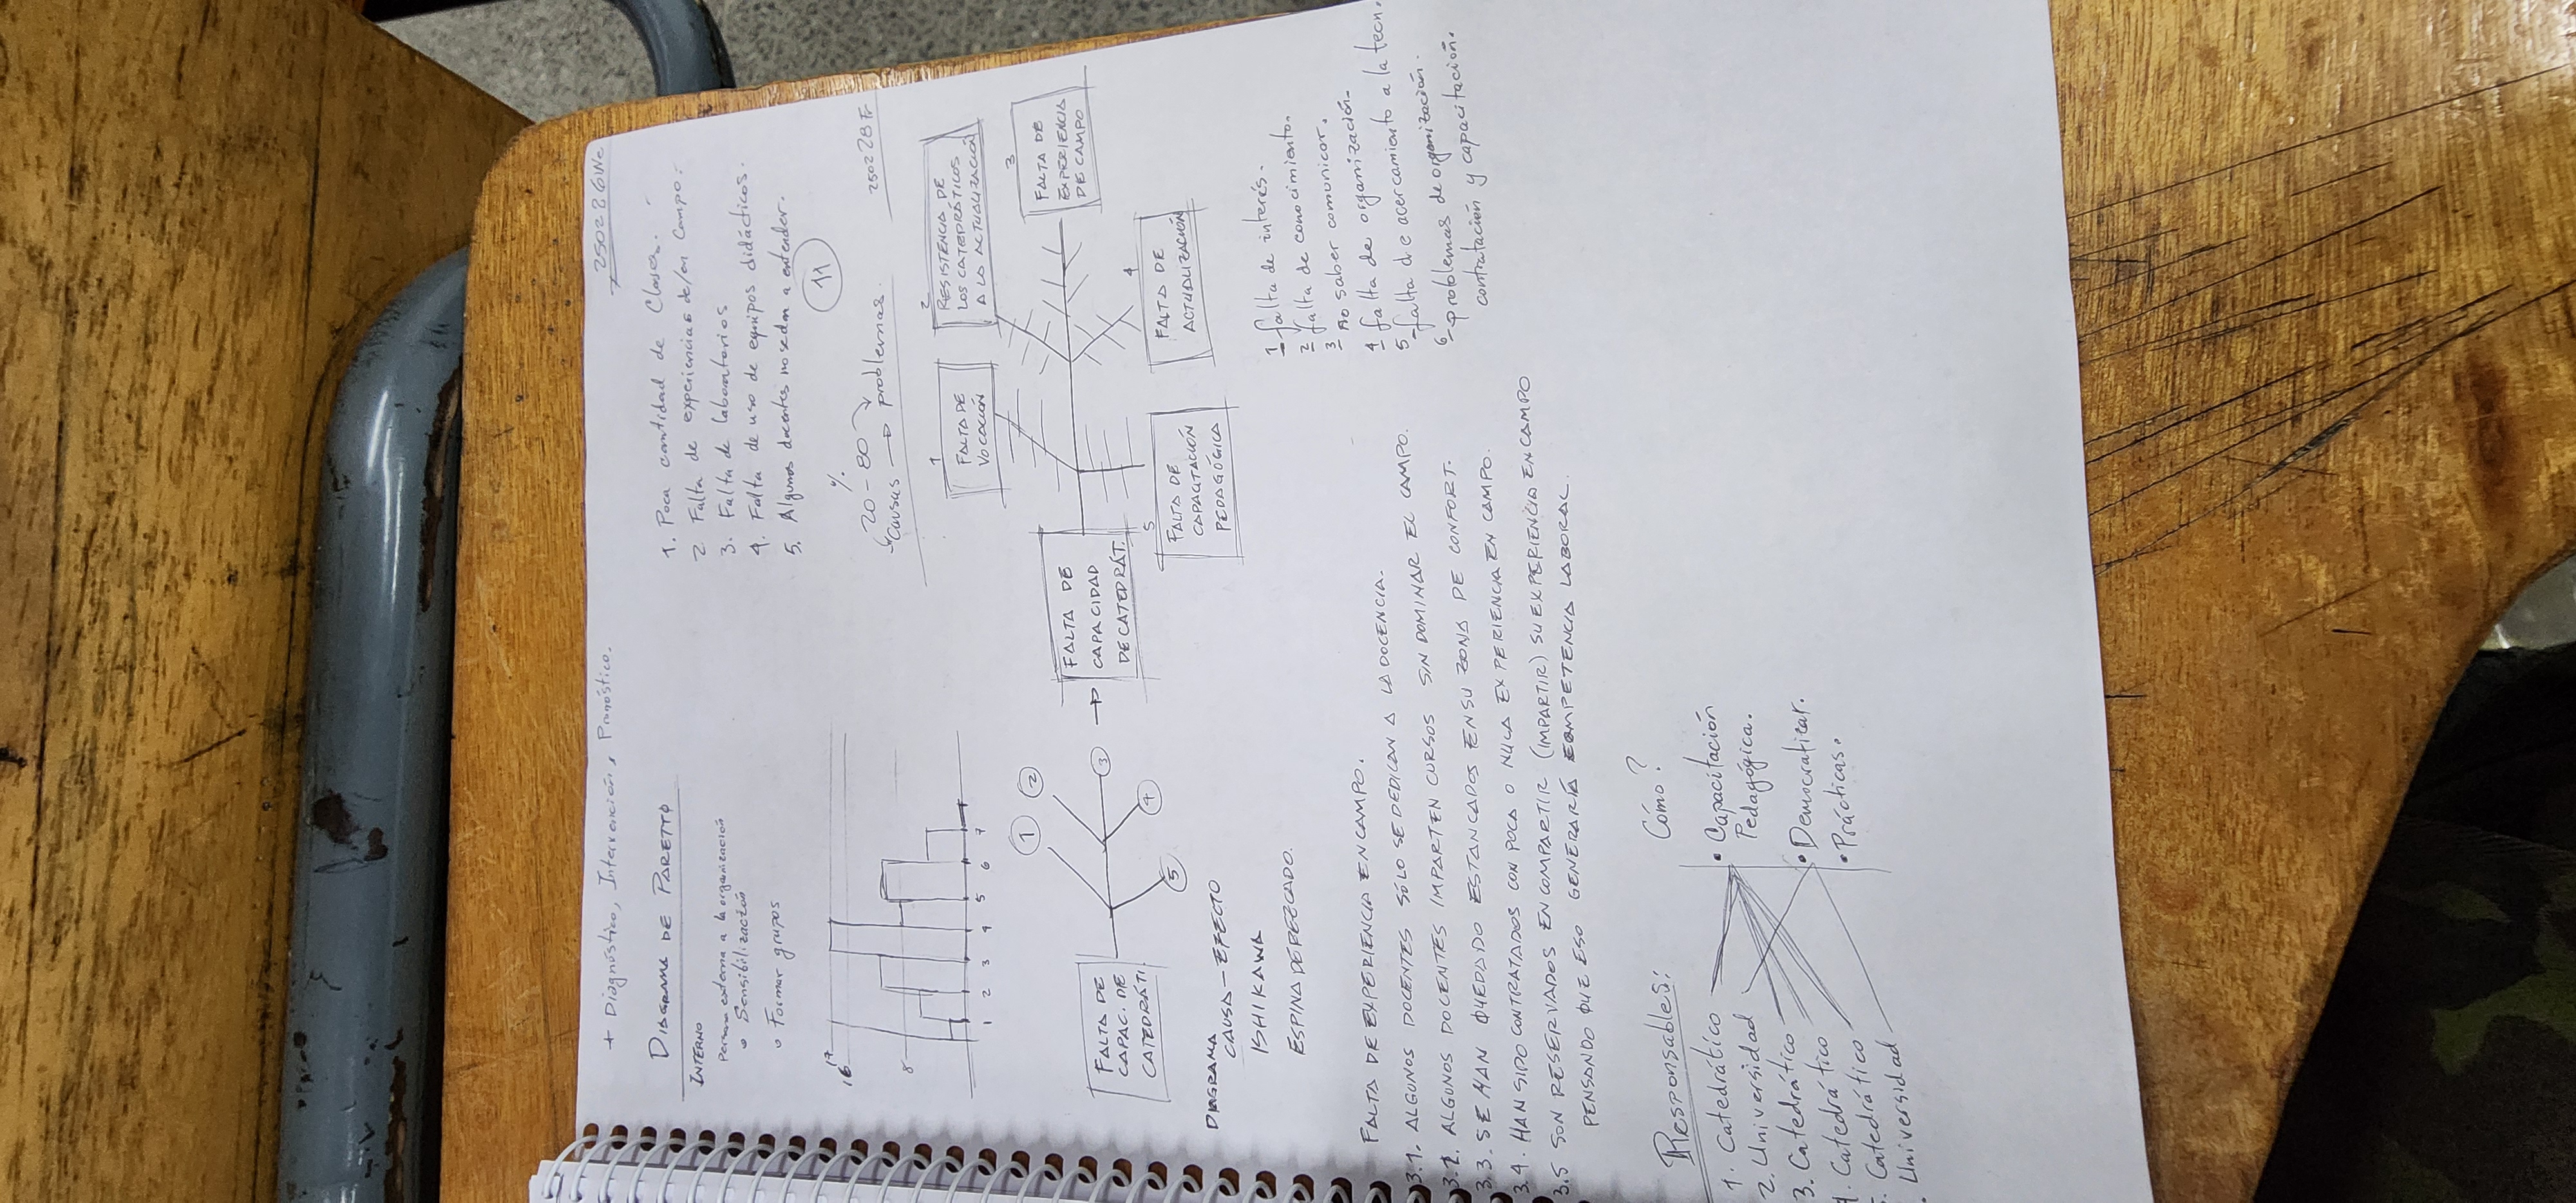 + Diagnóstico, Intervención, Pronóstico.
250226We
DIAGRAMA DE PARETTO
INTERNO
Persona externa a la organización
• Sensibilización
• Formar grupos
1. Poca cantidad de Clases.
2 Falta de experiencias de/en Campo.
3. Falta de laboratorios
4. Falta de uso de equipos didácticos.
5. Algunos docentes no se dan a entender.
11
%
20-80
Causas → problemas.
250228Fr
17
16
8
1 2 3 4 5 6 7
FALTA DE
CAPAC. DE
CATEDRÁTI.
1
2
3
4
5
→ FALTA DE
CAPACIDAD
DE CATEDRÁT.
1
FALTA DE
VOCACIÓN
2
RESISTENCIA DE
LOS CATEDRÁTICOS
A LA ACTUALIZACIÓN
3
FALTA DE
EXPERIENCIA
DE CAMPO
4
FALTA DE
ACTUALIZACIÓN
5
FALTA DE
CAPACITACIÓN
PEDAGÓGICA
DIAGRAMA
CAUSA-EFECTO
ISHIKAWA
ESPINA DE PEZCADO.
1 falta de interés.
2 falta de conocimiento.
3 no saber comunicar.
4 falta de organización.
5 falta de acercamiento a la tecn.
6 problemas de organización
contratación y capacitación.
FALTA DE EXPERIENCIA EN CAMPO.
3.1. ALGUNOS DOCENTES SÓLO SE DEDICAN A LA DOCENCIA.
3.2. ALGUNOS DOCENTES IMPARTEN CURSOS SIN DOMINAR EL CAMPO.
3.3. SE HAN QUEDADO ESTANCADOS EN SU ZONA DE CONFORT.
3.4. HAN SIDO CONTRATADOS CON POCA O NULA EXPERIENCIA EN CAMPO.
3.5 SON RESERVADOS EN COMPARTIR (IMPARTIR) SU EXPERIENCIA EN CAMPO
PENSANDO QUE ESO GENERARÍA COMPETENCIA LABORAL.
Responsables:
1. Catedrático
2. Universidad
3. Catedrático
4. Catedrático
5. Catedrático
. Universidad
Cómo?
• Capacitación
Pedagógica.
• Democratizar.
• Prácticas.